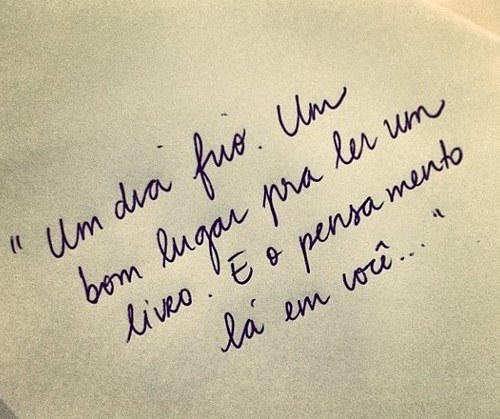 "Um dia frio. Um
bom lugar pra ler um
livro. E o pensamento
lá em você..."